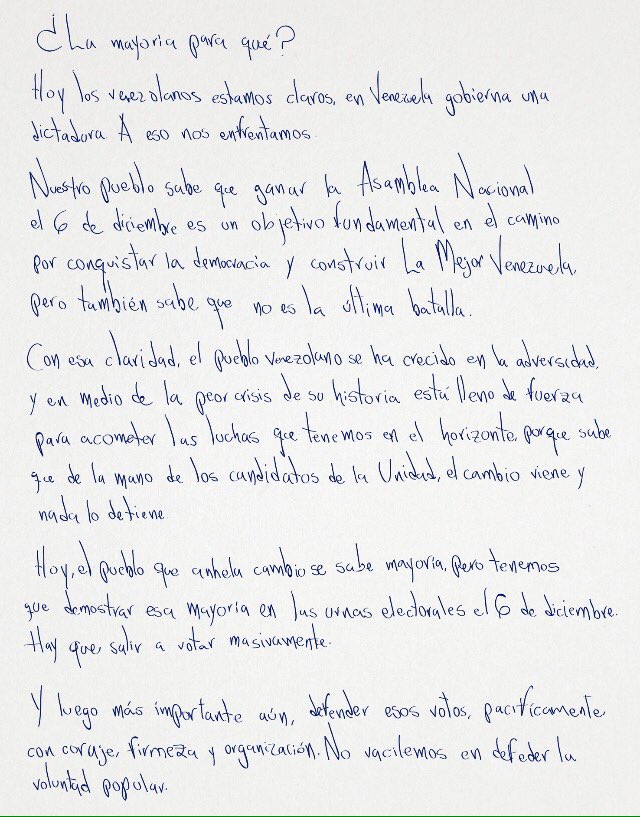 ¿La mayoria para qué?
Hoy los venezolanos estamos claros, en Venezuela gobierna una
dictadura. A eso nos enfrentamos.
Nuestro pueblo sabe que ganar la Asamblea Nacional
el 6 de diciembre es un objetivo fundamental en el camino
por conquistar la democracia y construir La Mejor Venezuela,
pero también sabe que no es la última batalla.
Con esa claridad, el pueblo venezolano se ha crecido en la adversidad,
y en medio de la peor crisis de su historia está lleno de fuerza
para acometer las luchas que tenemos en el horizonte, porque sabe
que de la mano de los candidatos de la Unidad, el cambio viene y
nada lo detiene.
Hoy, el pueblo que anhela cambio se sabe mayoría, pero tenemos
que demostrar esa mayoría en las urnas electorales el 6 de diciembre.
Hay que salir a votar masivamente.
Y luego más importante aún, defender esos votos, pacíficamente,
con coraje, firmeza y organización. No vacilemos en defeder la
voluntad popular.